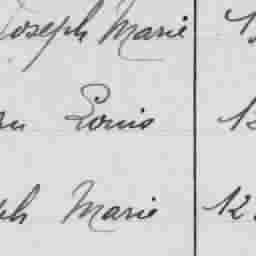 Joseph Marie
Louis
Marie 12